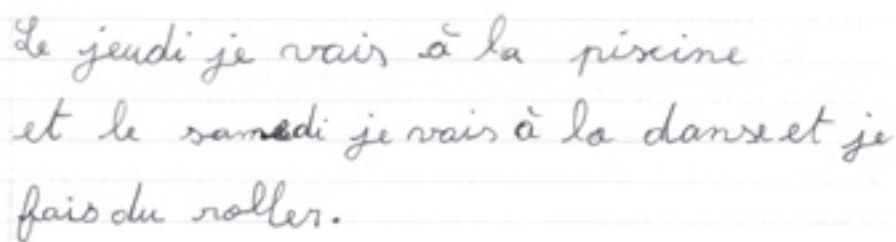 Le jeudi je vais à la piscine
et le samedi je vais à la danse et je
fais du roller.